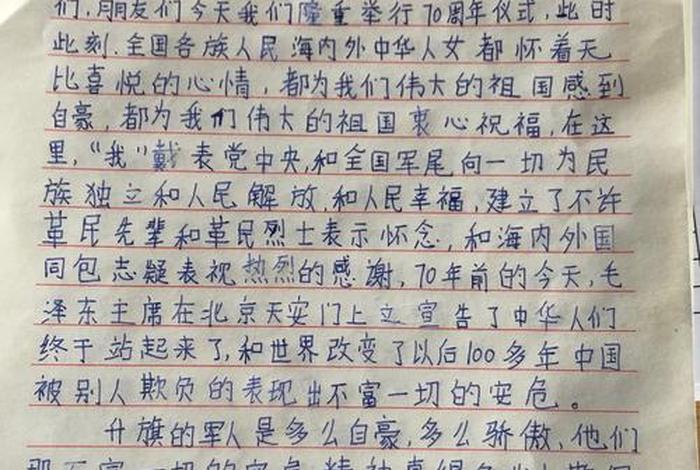 们,朋友们今天我们隆重举行70周年仪式,此时
此刻.全国各族人民海内外中华人女都怀着无
比喜悦的心情,都为我们伟大的祖国感到
自豪,都为我们伟大的祖国衷心祝福,在这
里,“我”戴表党中央,和全国军尾向一切为民
族独立和人民解放,和人民幸福,建立了不许
革民先辈和革民烈士表示怀念,和海内外国
同包志疑表视热烈的感谢,70年前的今天,毛
泽东主席在北京天安门上立宣告了中华人们
终于站起来了,和世界改变了以后100多年中国
被别人欺负的表现出不富一切的安危。
升旗的军人是多么自豪,多么骄傲,他们
一切的安危